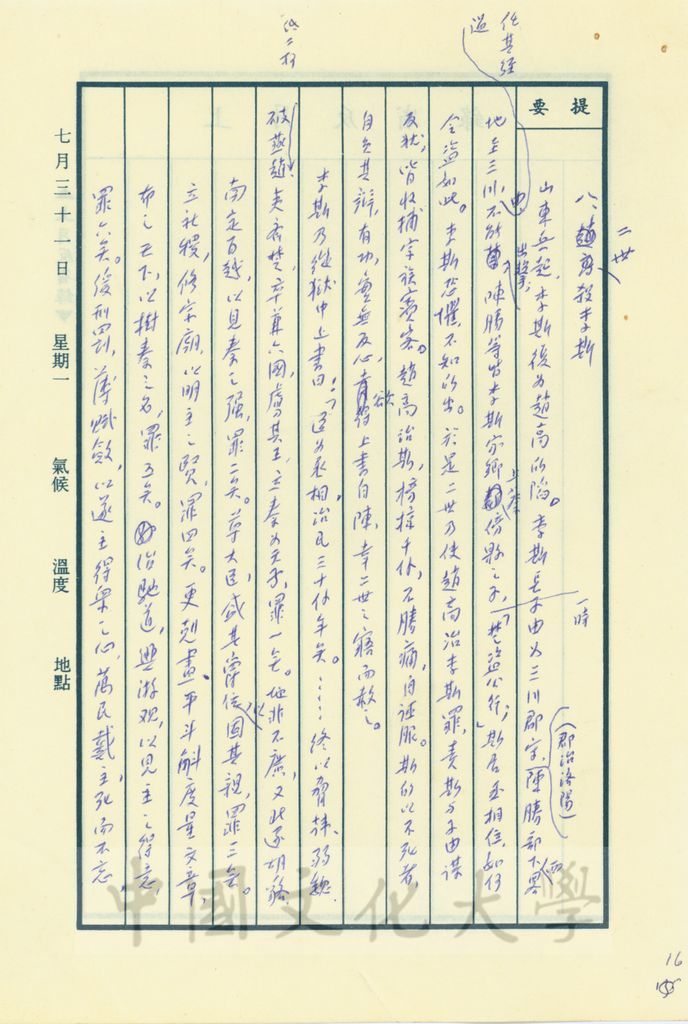 提要
八、二世殺李斯
山東兵起,李斯後為趙高所陷。李斯長子由為三川郡守,陳勝部下西
(郡治洛陽)
一時
任其經過
地至三川,不能
出擊,
陳勝等皆李斯家鄉
上蔡
傍縣之子,「楚盜公行」;斯居丞相位,如何
令盜如此。李斯恐懼,不知所出。於是二世乃使趙高治李斯罪,責斯與子由謀
反狀,皆收捕宗族賓客。趙高治斯,榜掠千餘,不勝痛,自誣服。斯所以不死者,
自負其辯,有功,實無反心,欲上書自陳,幸二世之寤而赦之。
李斯乃從獄中上書曰:「臣為丞相治民三十餘年矣。……終以脅韓、弱魏、
破燕趙、夷齊楚,卒兼六國,虜其王,立秦為天子,罪一矣。地非不廣,又北逐胡貉,
南定百越,以見秦之强,罪二矣。尊大臣,盛其爵位,以固其親,罪三矣。
立社稷,修宗廟,以明主之賢,罪四矣。更剋畫,平斗斛度量文章,
布之天下,以樹秦之名,罪五矣。治馳道,興游觀,以見主之得意,
罪六矣。緩刑罰,薄賦斂,以遂主得眾之心,萬民戴主,死而不忘,
七月三十一日 星期一 氣候 溫度 地點
中國文化大學
16